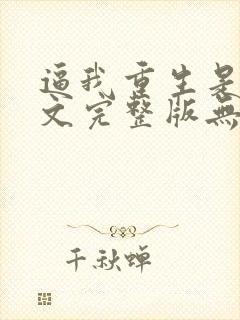 逼我重生是
文完整版無
千秋蝉